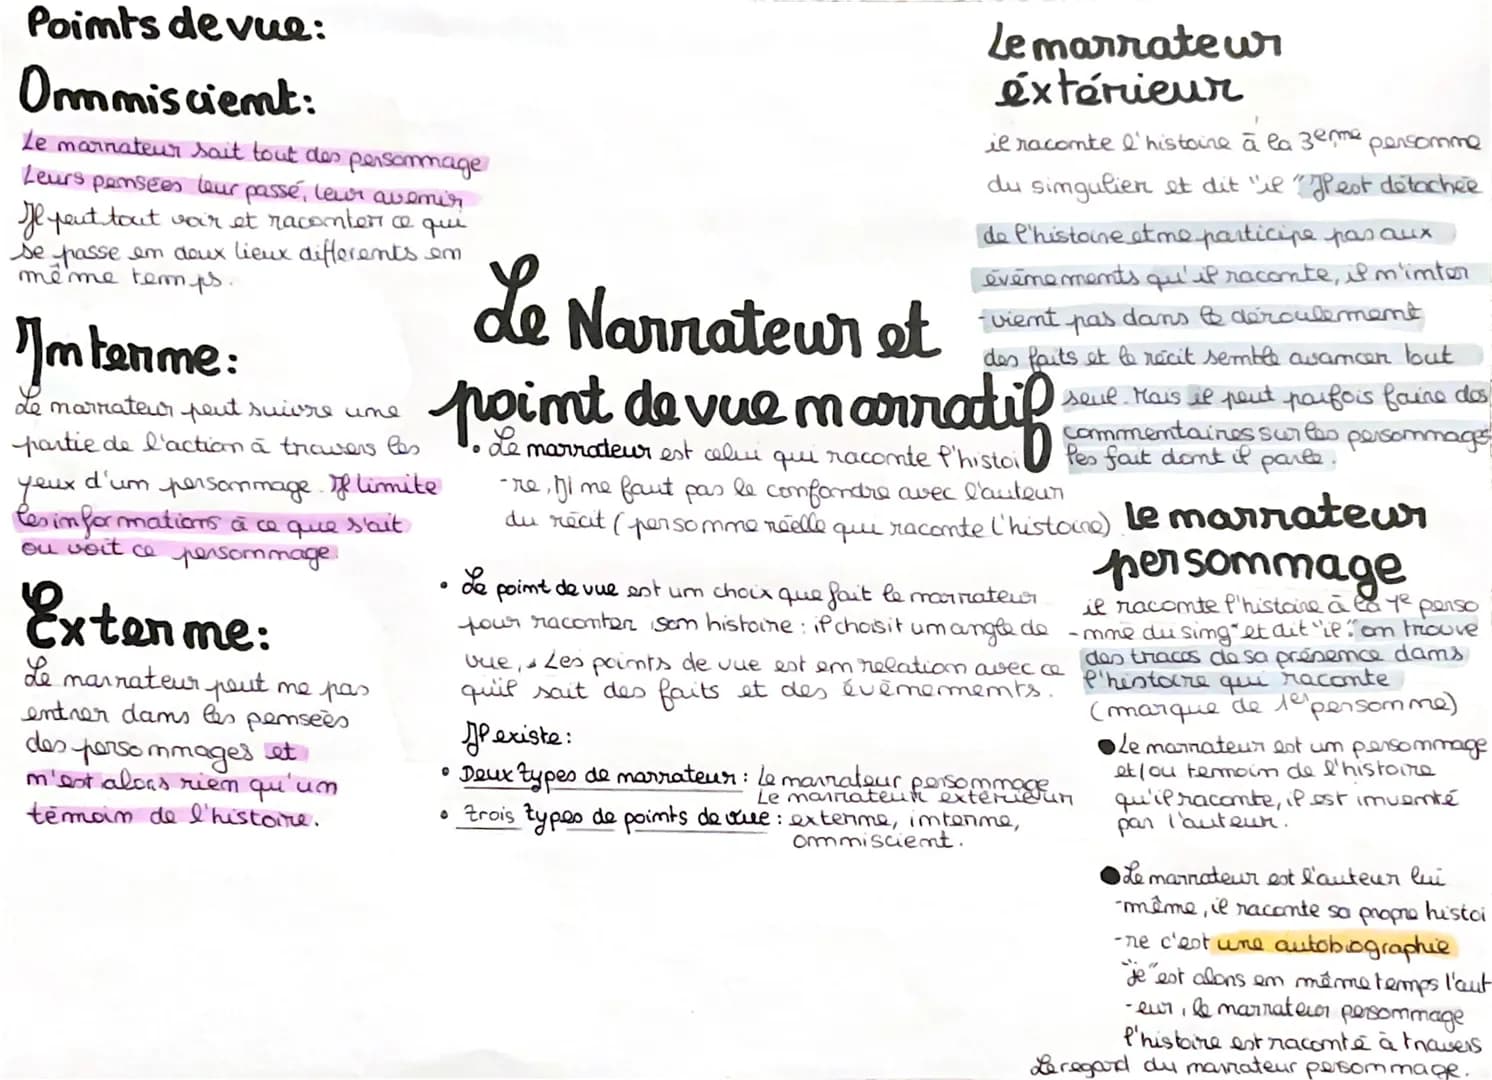 Points de vue:
Ommniscient:
Le narrateur sait tout des personnage
Leurs pensées leur passé, leur avenir
Il peut tout voir et raconter ce qui
se passe en deux lieux differents en
même temps.
Interne:
Le narrateur peut suivre une
partie de l'action à travers les
yeux d'un personnage. Il limite
les informations à ce que s'ait
ou voit ce personnage.
Externe:
Le narrateur peut ne pas
entrer dans les penseés
des personnages et
n'est alors rien qu'un
témoin de l'histoire.
Le Narrateur et
point de vue narratif
• Le narrateur est celui qui raconte l'histoi
-re, Il ne faut pas le confondre avec l'auteur
du récit (personne réelle qui raconte l'histoire)
• Le point de vue est un choix que fait le narrateur
pour raconter son histoire : il choisit un angle de
vue, Les points de vue est en relation avec ce
qu'il sait des faits et des évènements.
Il existe:
• Deux types de narrateur : Le narrateur personnage
Le narrateur extérieur
• trois types de points de vue : externe, interne,
ommniscient.
Le narrateur
éxtérieur
il raconte l'histoire à la 3eme personne
du singulier et dit "il" Il est détachée
de l'histoire et ne participe pas aux
évènements qu'il raconte, il n'inter
-vient pas dans le déroulement
des faits et le récit semble avancer tout
seul. Mais il peut parfois faire des
commentaires sur les personnages
les fait dont il parle.
Le narrateur
personnage
il raconte l'histoire à la 1e perso
-nne du sing et dit "il". on trouve
des traces de sa présence dans
l'histoire qui raconte
(marque de 1er personne)
● Le narrateur est un personnage
et/ou temoin de l'histoire
qu'il raconte, il est inventé
par l'auteur.
● Le narrateur est l'auteur lui
-même, il raconte sa propre histoi
-re c'est une autobiographie
"je" est alors en même temps l'aut
-eur, le narrateur personnage
l'histoire est raconté à travers
Le regard du narrateur personnage.